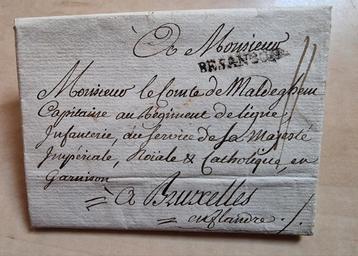 A Monsieur
BESANCON
Monsieur le Comte de Maldeghem
Capitaine au Régiment de Ligne
Infanterie, au Service de Sa Majesté
Impériale, Roiale & Catholique, en
Garnison
= A Bruxelles
en flandre ./.